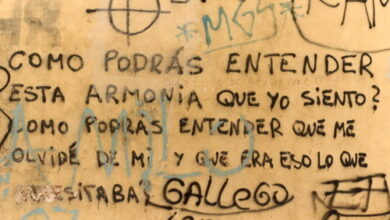 *MGS*
COMO PODRÁS ENTENDER
ESTA ARMONIA QUE YO SIENTO?
COMO PODRÁS ENTENDER QUE ME
OLVIDÉ DE MI Y QUE ERA ESO LO QUE
NECESITABA? GALLEGO